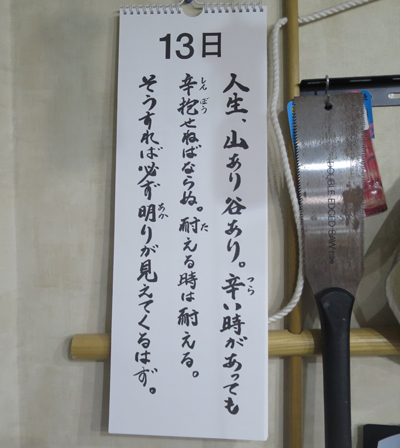 13日
人生、山あり谷あり。辛い時があっても
辛抱せねばならぬ。耐える時は耐える。
そうすれば必ず明りが見えてくるはず。
つら
しんぼう
た
あか
DOUBLE EDGED SAW